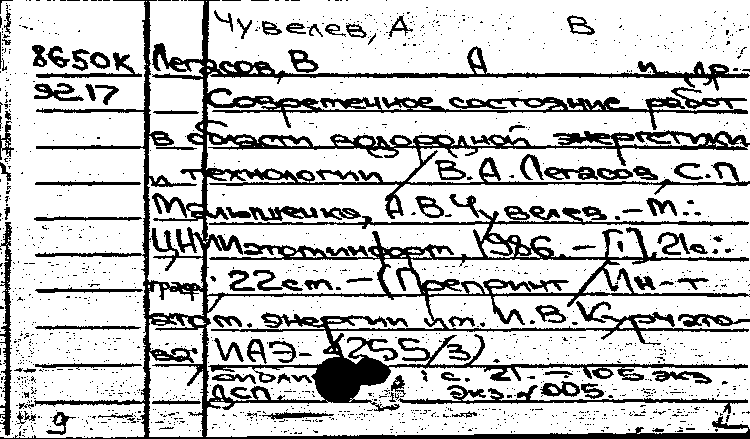 Чувелев, А В
8650К Легасов, В А и др.
9217 Современное состояние работ
в области водородной энергетики
и технологии / В.А. Легасов, С.П.
Малышенко, А.В. Чувелев. – М.:
ЦНИИатоминформ, 1986. – [1], 21с.:
граф.; 22см. – (Препринт / Ин-т
атом. энергии им. И.В. Курчато-
ва; ИАЭ-4255/3).
: с. 21. – 105 экз.
ДСП. Экз. № 005.
9